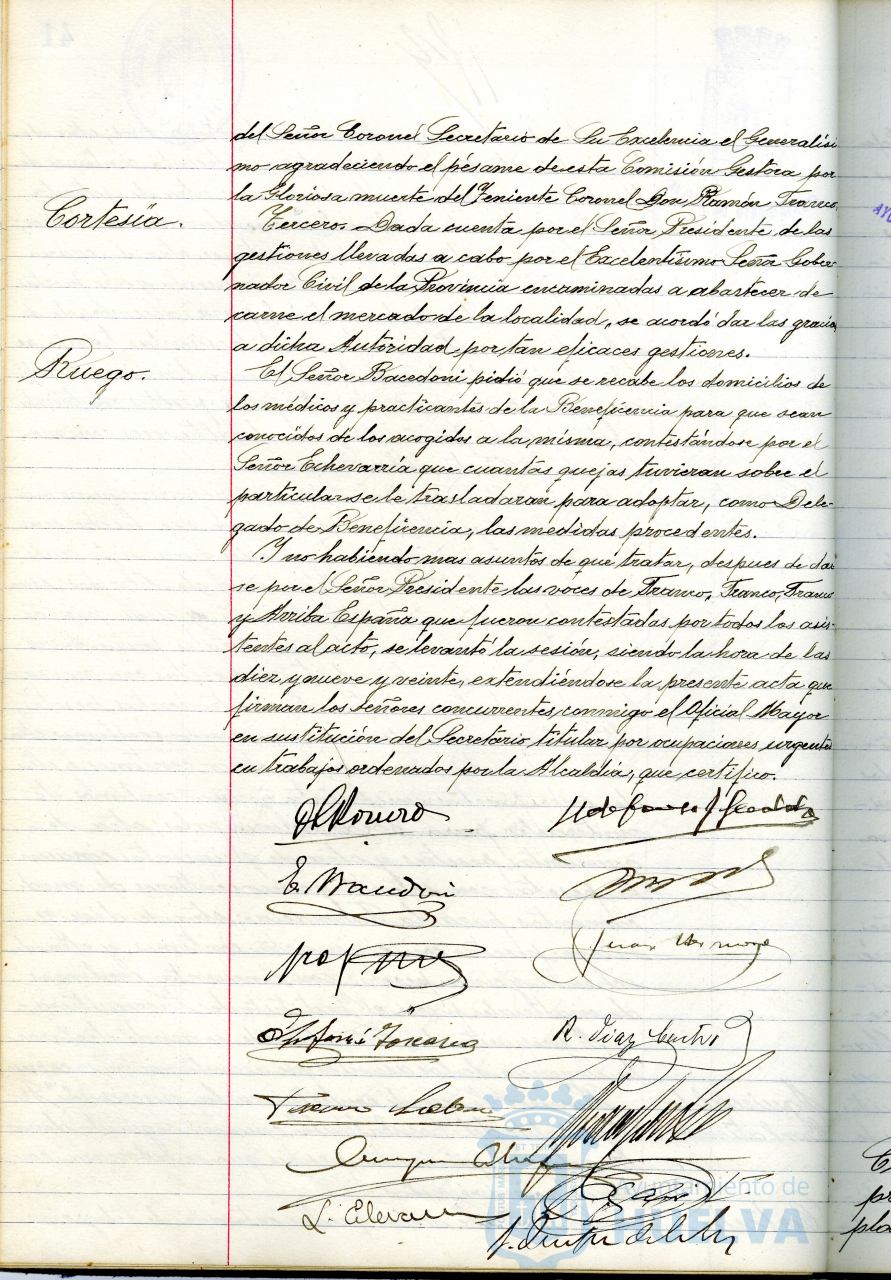 del Señor Coronel Secretario de Su Excelencia el Generalísi
mo agradeciendo el pésame de esta Comisión Gestora por
la Gloriosa muerte del Teniente Coronel Don Ramón Franco.
Cortesía.
Tercero. Dada cuenta por el Señor Presidente de las
gestiones llevadas a cabo por el Excelentísimo Señor Gober-
nador Civil de la Provincia encaminadas a abastecer de
carne el mercado de la localidad, se acordó dar las gracias
a dicha Autoridad por tan eficaces gestiones.
Ruego.
El Señor Bacedoni pidió que se recabe los domicilios de
los médicos y practicantes de la Beneficencia para que sean
conocidos de los acogidos a la misma, contestándose por el
Señor Echevarría que cuantas quejas tuvieran sobre el
particular se le trasladaran para adoptar, como Dele-
gado de Beneficencia, las medidas procedentes.
Y no habiendo mas asuntos de que tratar, despues de dar
se por el Señor Presidente las voces de Franco, Franco, Franco
y Arriba España que fueron contestadas por todos los asis-
tentes al acto, se levantó la sesión, siendo la hora de las
diez y nueve y veinte, extendiéndose la presente acta que
firman los señores concurrentes, conmigo el Oficial Mayor
en sustitución del Secretario titular por ocupaciones urgentes
en trabajos ordenados por la Alcaldía, que certifico.
R. Díaz
Ayuntamiento de
HUELVA